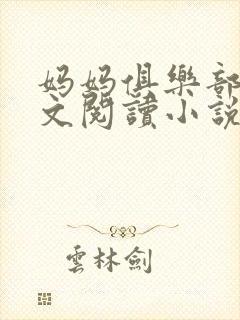 妈妈俱樂部
文閱讀小說
雲林劍